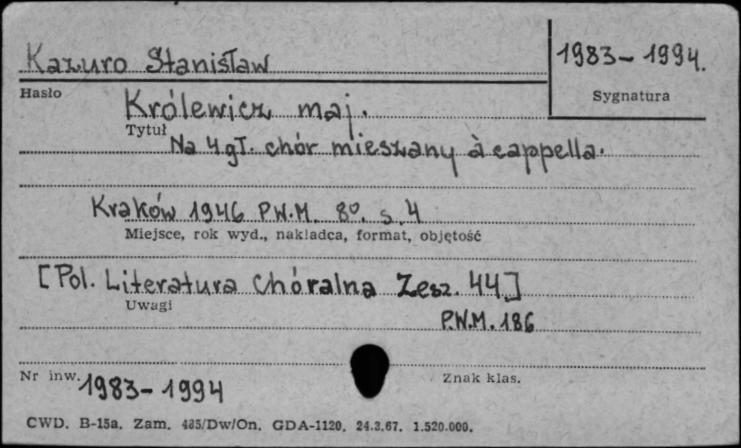 Kazuro Stanisław
1983-1994.
Hasło
Sygnatura
Królewicz maj.
Tytuł
Na 4 gł. chór mieszany à cappella.
Kraków 1946 P.W.M. 8º. s. 4
Miejsce, rok wyd., nakładca, format, objętość
[Pol. Literatura Chóralna Zesz. 44]
Uwagi
P.W.M. 186
Nr inw. 1983-1994
Znak klas.
CWD. B-15a. Zam. 485/Dw/On. GDA-1120. 24.3.67. 1.520.000.